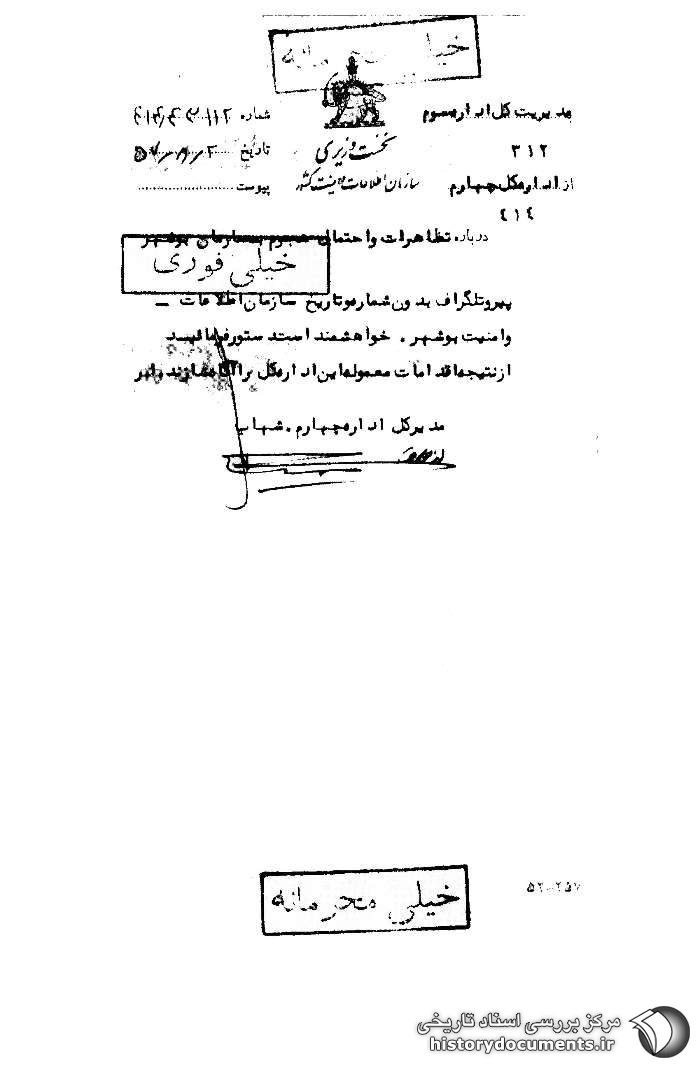 خیلی محرمانه
مدیریت کل اداره سوم
۳۱۲
از اداره کل چهارم
٤١٤
نخست وزیری
سازمان اطلاعات و امنیت کشور
شماره
تاریخ
پیوست
درباره تظاهرات و احتمال هجوم بسازمان بوشهر
خیلی فوری
پیرو تلگراف بدون شماره و تاریخ سازمان اطلاعات _
وامنیت بوشهر . خواهشمند است دستور فرمائید
از نتیجه اقدامات معموله این اداره کل را آگاه سازند
مدیرکل اداره چهارم . شهاب
خیلی محرمانه
مرکز بررسی اسناد تاریخی
historydocuments.ir